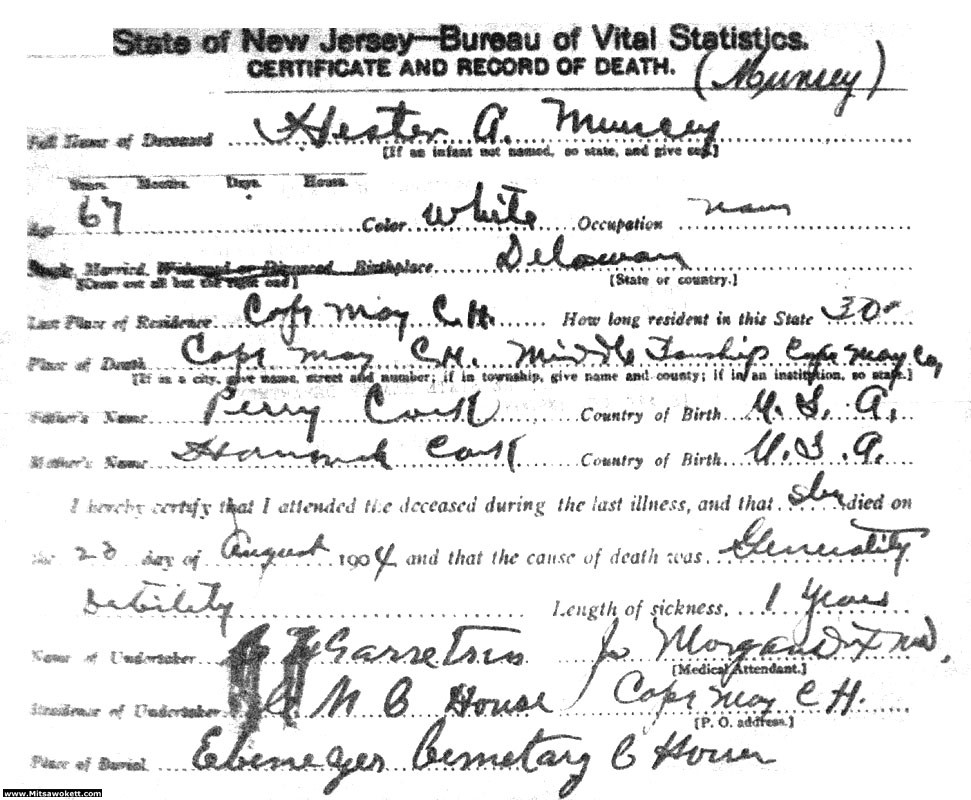 State of New Jersey—Bureau of Vital Statistics.
CERTIFICATE AND RECORD OF DEATH. (Munsey)
Full Name of Deceased Hester A. Muncey
[If an infant not named, so state, and give sex.]
Years. Months. Days. Hours.
Age 67 Color White Occupation
Single, Married, Widowed or Divorced Birthplace Delaware
[Cross out all but the right one] [State or country.]
Last Place of Residence Cape May C.H. How long resident in this State 30
Place of Death Cape May C.H. Middle Township Cape May Co,
[If in a city, give name, street and number; if in township, give name and county; if in an institution, so state.]
Father's Name Perry Cork Country of Birth U.S.A.
Mother's Name Hannah Cork Country of Birth U.S.A.
I hereby certify that I attended the deceased during the last illness, and that she died on
the 28 day of August 1904 and that the cause of death was
Debility Length of sickness 1 Year
Name of Undertaker Garretson Morgan Dix MD.
[Medical Attendant.]
Residence of Undertaker C M C House Cape May C H.
[P. O. address.]
Place of Burial Ebenezer Cemetary C House
www.Mitsawokett.com